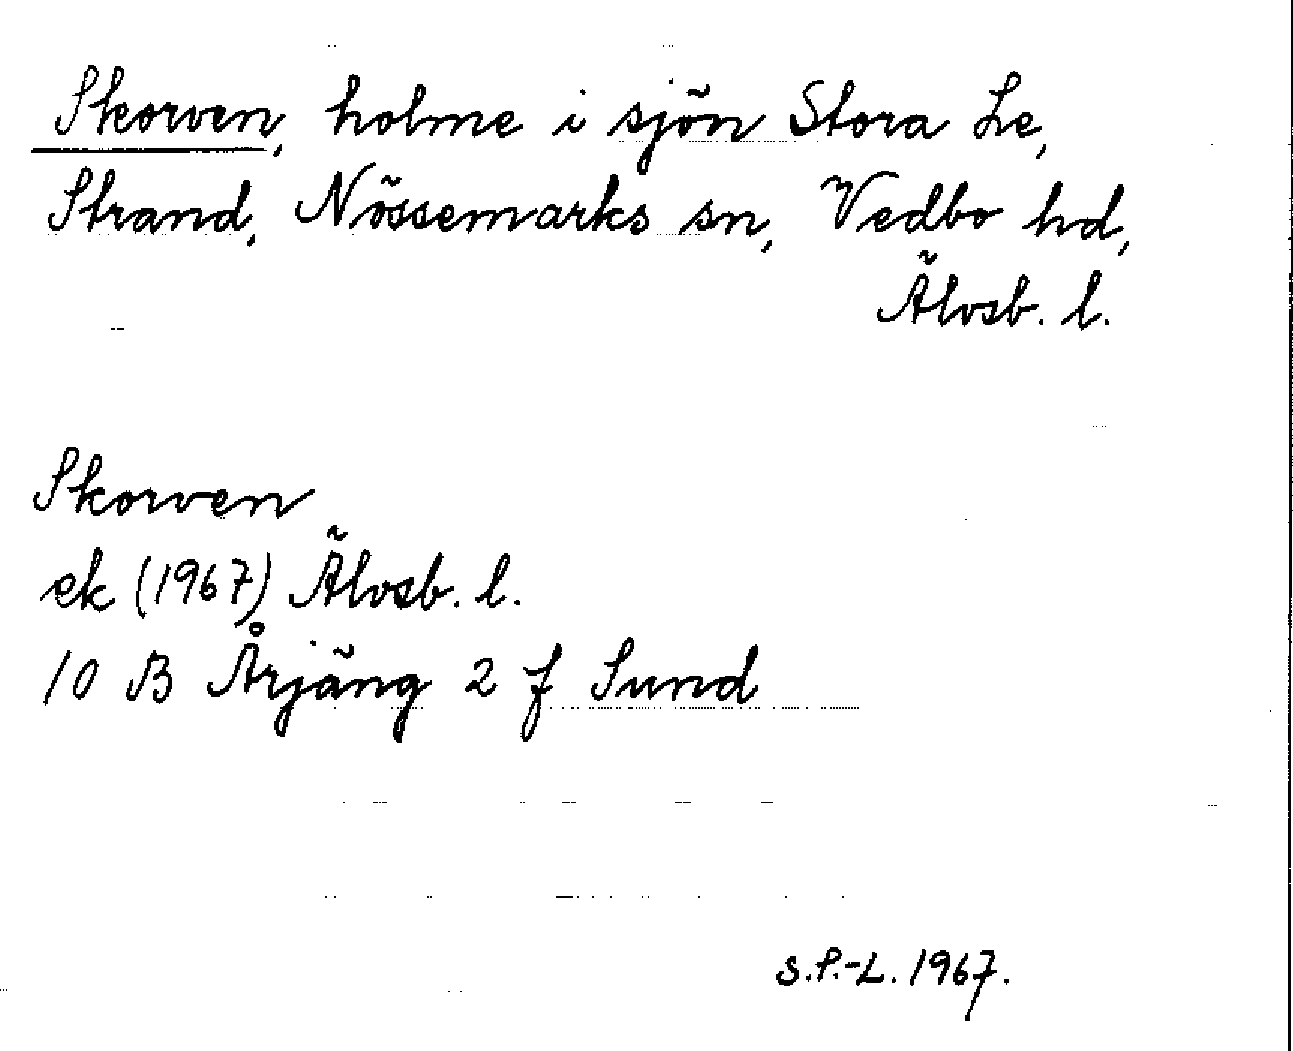 Skorven, holme i sjön Stora Le,
Strand, Nössemarks sn, Vedbo hd,
Älvsb. l.
Skorven
ek (1967) Älvsb. l.
10 B Årjäng 2 f Sund
S.P.-L. 1967.